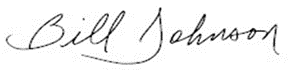 Bill Johnson